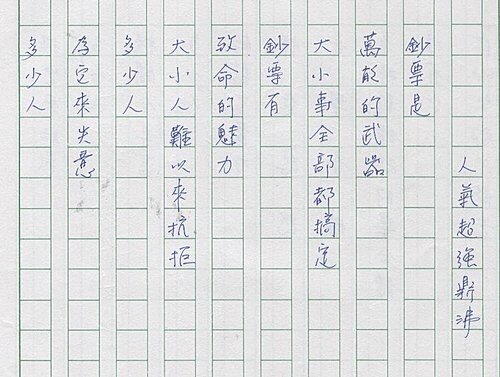 人氣超強鼎沸
鈔票是
萬能的武器
大小事全部都搞定
鈔票有
致命的魅力
大小人難以來抗拒
多少人
為它來失意
多少人